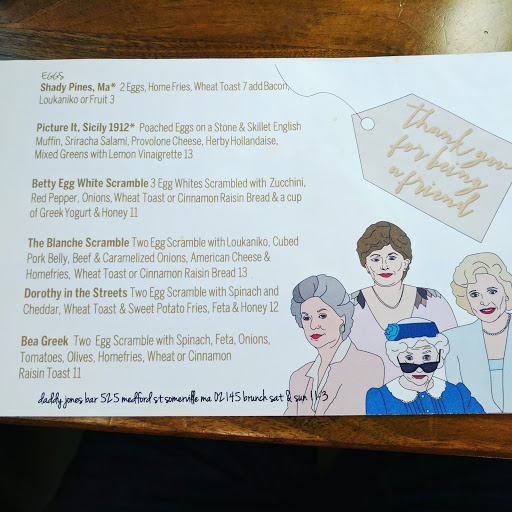 EGGS
Shady Pines, Ma* 2 Eggs, Home Fries, Wheat Toast 7 add Bacon,
Loukaniko or Fruit 3
Picture It, Sicily 1912* Poached Eggs on a Stone & Skillet English
Muffin, Sriracha Salami, Provolone Cheese, Herby Hollandaise,
Mixed Greens with Lemon Vinaigrette 13
Betty Egg White Scramble 3 Egg Whites Scrambled with Zucchini,
Red Pepper, Onions, Wheat Toast or Cinnamon Raisin Bread & a cup
of Greek Yogurt & Honey 11
The Blanche Scramble Two Egg Scramble with Loukaniko, Cubed
Pork Belly, Beef & Caramelized Onions, American Cheese &
Homefries, Wheat Toast or Cinnamon Raisin Bread 13
Dorothy in the Streets Two Egg Scramble with Spinach and
Cheddar, Wheat Toast & Sweet Potato Fries, Feta & Honey 12
Bea Greek Two Egg Scramble with Spinach, Feta, Onions,
Tomatoes, Olives, Homefries, Wheat or Cinnamon
Raisin Toast 11
daddy jones bar 525 medford st somerville ma 02145 brunch sat & sun 11-3
thank you
for being
a friend